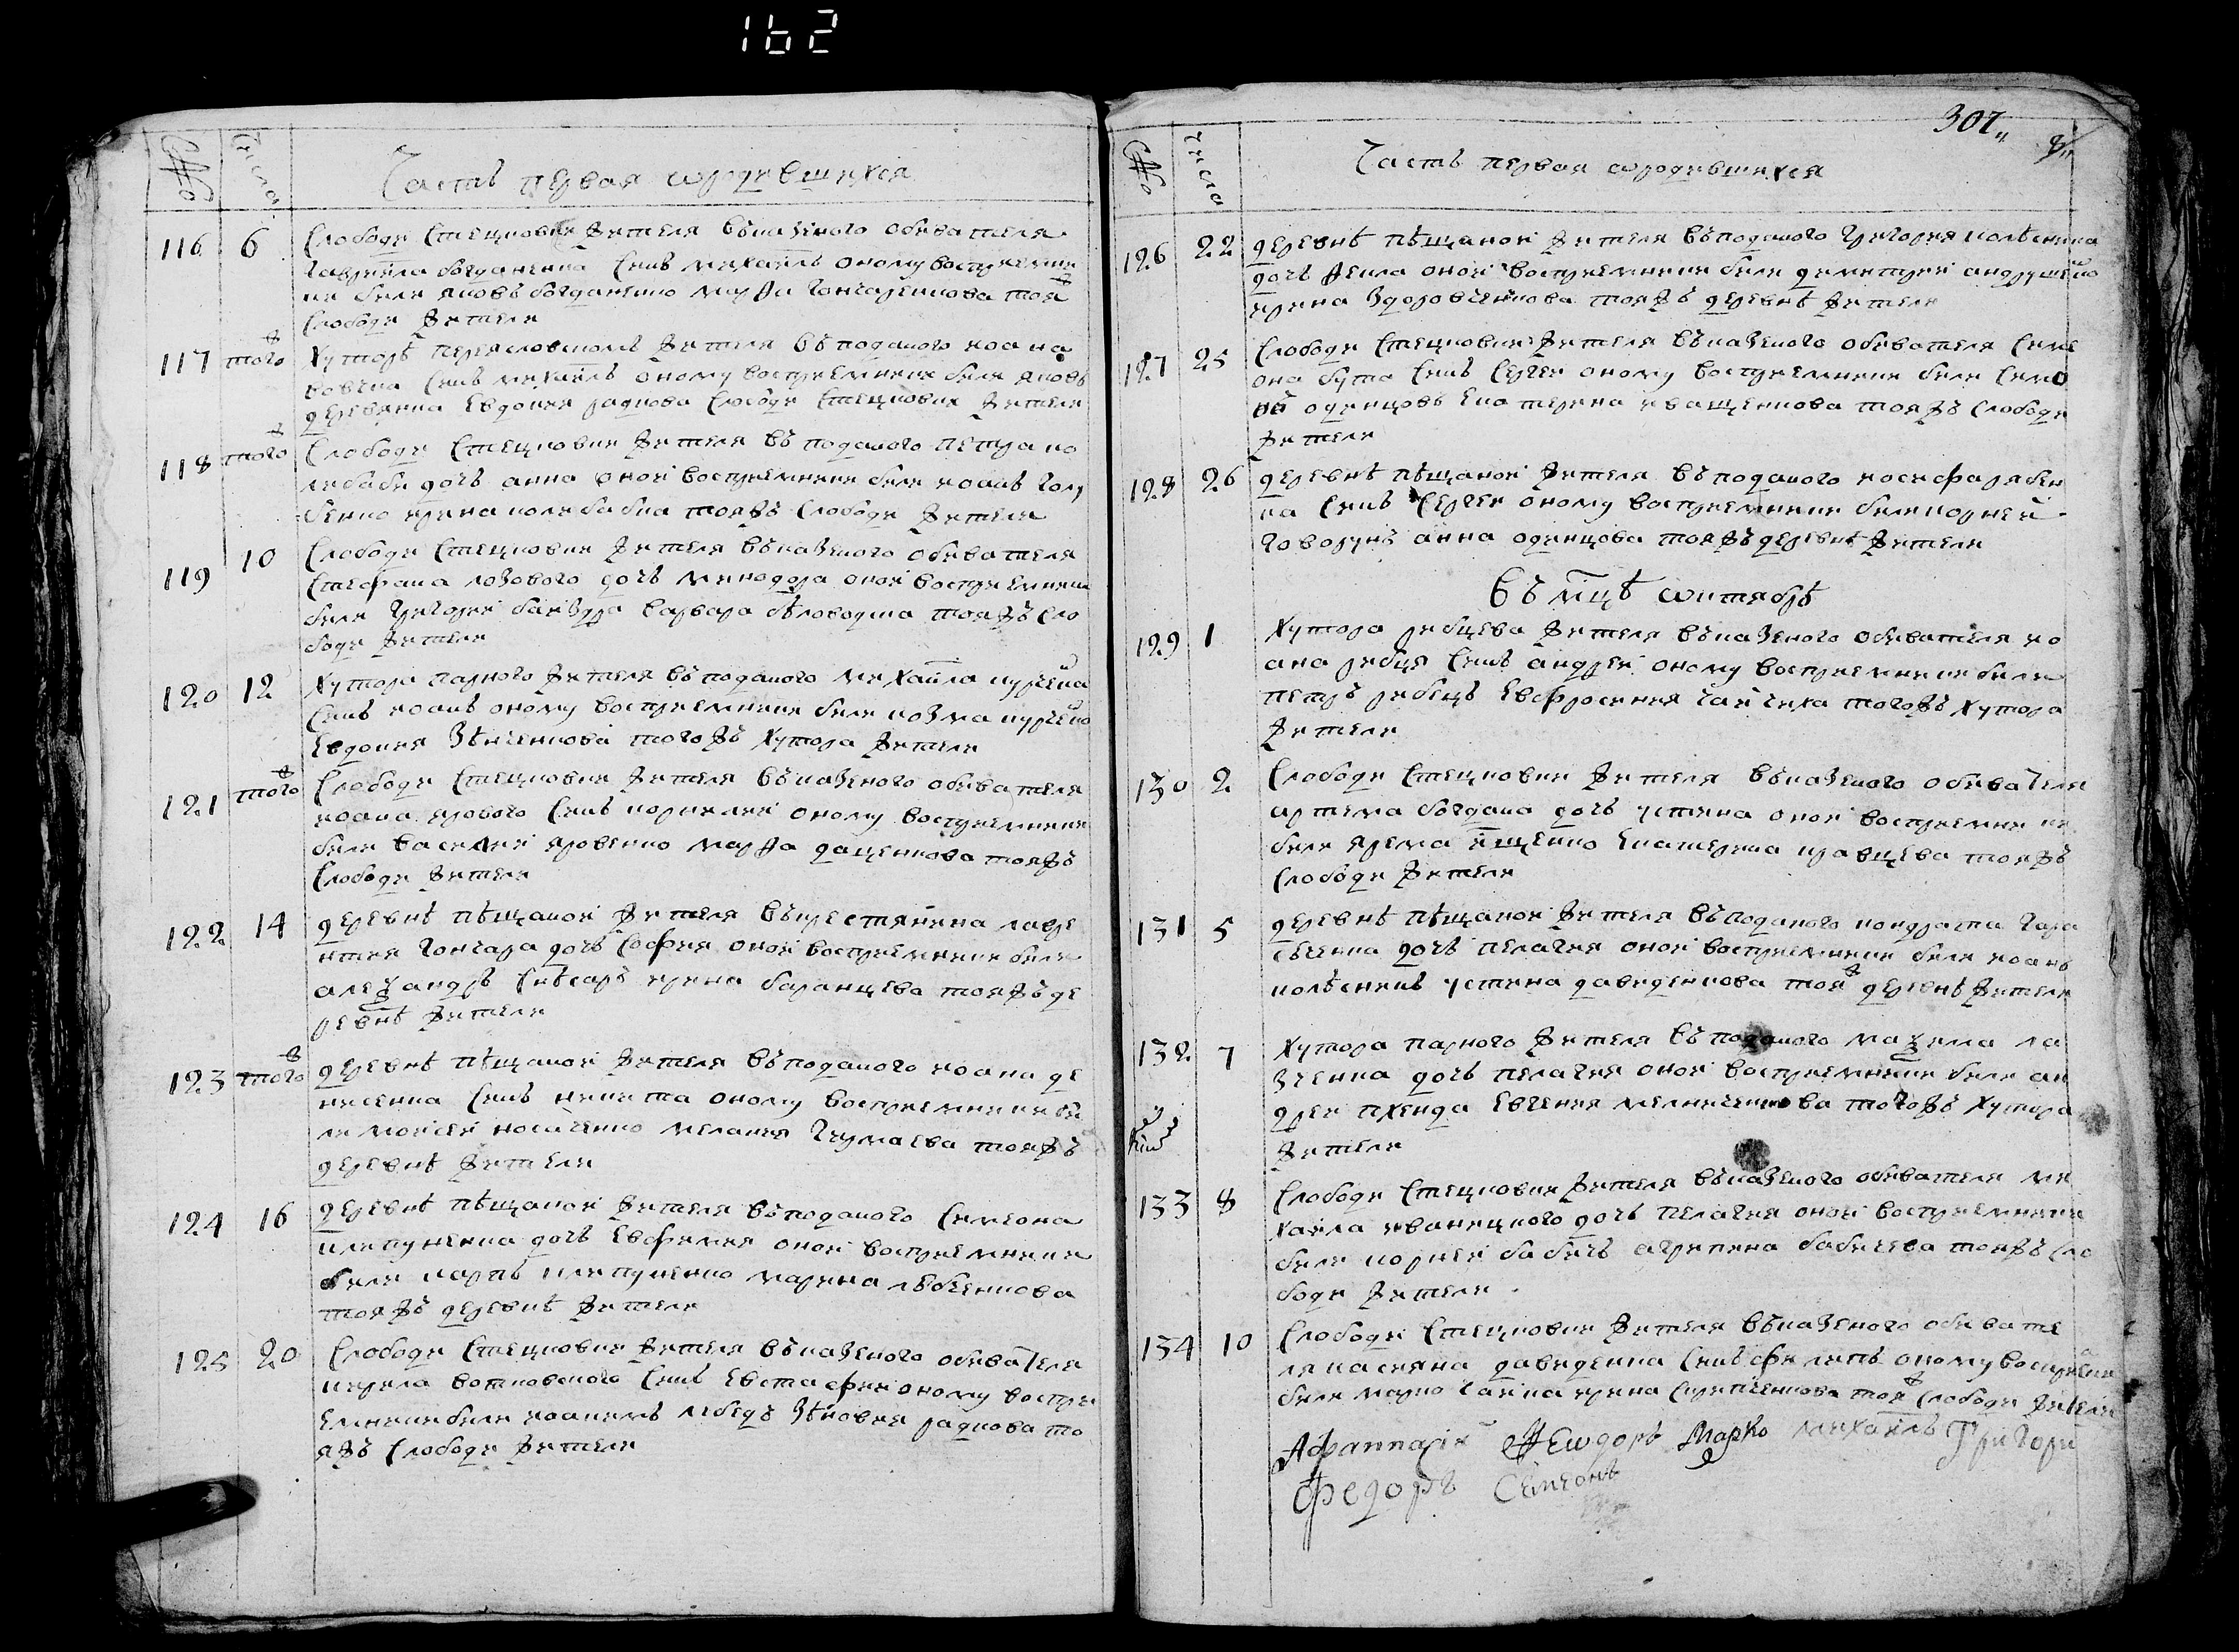 162
№ числа Часть первая ѡродившихся
116 6 Слободи Стецковки жителя въказеного обивателя
Гавриила богданенка синъ михаилъ оному восприемни
ки били яковъ богданенко марѳа гончаренкова тояж
слободи жители
117 того ж Хуторѣ жителя въ поданого иоана
синъ михаилъ оному восприемники били яковъ
деревянка Евдокия радкова слободи Стецковки жители
118 того ж Слободи Стецковки жителя въ поданого петра ко
либаби дочъ анна оной восприемники били иоанъ голу
бенко ирина колибабка тояжъ слободи жители
119 10 Слободи Стецковки жителя въказеного обивателя
Стефана лозового дочъ минодора оной восприемники
били григорий бандура варвара бѣловодша тояжъ сло
боди жители
120 12 Хутора парного жителя въ поданого михаила
синъ иоанъ оному восприемники били козма
Евдокия тогожъ хутора жители
121 того ж Слободи Стецковки жителя въказеного обивателя
иоана ярового синъ корнилий оному восприемники
били василий яровенко марѳа даценкова тояжъ
слободи жители
122 14 деревнѣ пѣщаной жителя въкрестянина лавре
нтия гончара дочъ софия оной восприемники били
алеѯандръ слѣсаръ ирина баранцева тояжъ де
ревнѣ жители
123 того ж деревнѣ пѣщаной жителя въ поданого иоана де
нисенка синъ никита оному восприемники би
ли моисей носаченко мелания чумаева тояжъ
деревнѣ жители
124 16 деревнѣ пѣщаной жителя въ поданого симеона
клепуненка дочъ Евфимия оной восприемники
били карпъ клепуненко марина лѣбченкова
тояжъ деревнѣ жители
125 20 Слободи Стецковки жителя въказеного обивателя
кирила вотковского синъ Евстафий оному воспри
емники били иоакимъ лебедъ Зѣновия радкова то
яжъ слободи жители
307
8
№ числа Часть первая ѡродившихся
126 22 деревнѣ пѣщаной жителя въ поданого григория колѣсника
дочъ ѳекла оной восприемники били димитрий андрущенко
ирина здоровченкова тояжъ деревнѣ жители
127 25 Слободи Стецковки жителя въказеного обивателя симе
она бута синъ сергей оному восприемники били симо
нъ одинцовъ Екатерина иващенкова тояжъ слободи
жители
128 26 деревнѣ пѣщаной жителя въ поданого иосифа рябен
ка синъ сергей оному восприемники били корней
говорунъ анна одинцова тояжъ деревнѣ жители
въ мцѣ ѡктябрѣ
129 1 Хутора рибцева жителя въказеного обивателя ио
ана рибця синъ андрей оному восприемники били
петръ рибецъ Евфросиния чайчиха тогожъ хутора
жители
130 2 Слободи Стецковки жителя въказеного обивателя
артема богдана дочъ устина оной восприемни ки
били ярема ященко Екатерина кравцева тояжъ
слободи жители
131 5 деревнѣ пѣщаной жителя въ поданого кондрата гара
сченка дочъ пелагия оной восприемники били иоанъ
колѣсникъ устина давиденкова тояж деревнѣ жители
132 7 Хутора парного жителя въ поданого маѯима ла
зченка дочъ пелагия оной восприемники били ан
дрей пхенда Евгения мелниченкова тогожъ хутора
жители
133 8 Слободи Стецковки жителя въказеного обивателя ми
хаила иваницкого дочъ пелагия оной восприемники
били корней бабичъ агрипина бабичева тояжъ сло
боди жители
134 10 Слободи Стецковки жителя въказеного обивате
ля касияна давиденка синъ филипъ оному восприемни
били марко чайка ирина тояж слободи жители
Афанасий Ѳеѡдоръ Марко михаилъ Григори
Федоръ Симеонъ